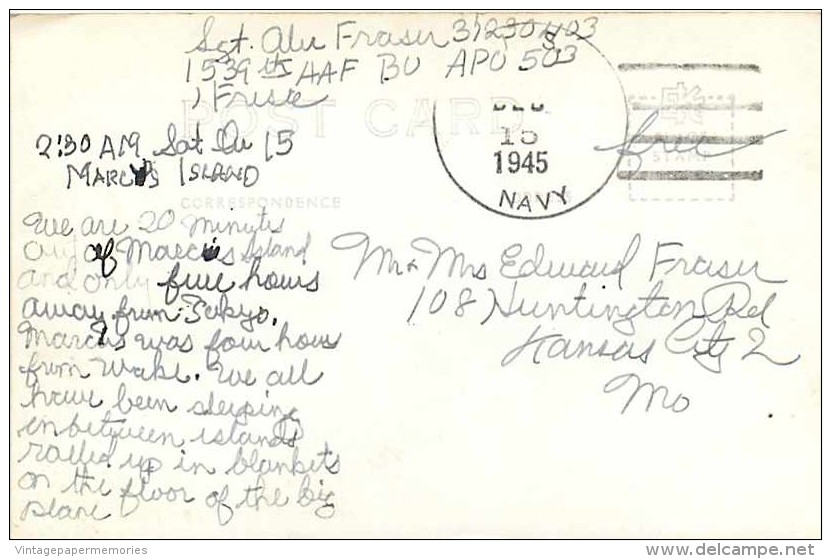 Sgt. Alec Fraser 31230403
1539th AAF BU APO 503
% Frisc
POST CARD
DEC
15
1945
NAVY
free
STAMP
2:30 AM Sat Dec 15
MARCUS ISLAND
CORRESPONDENCE
We are 20 minutes
out of Marcus Island
and only five hours
away from Tokyo.
Marcus was four hours
from Wake. We all
have been sleeping
in between islands
rolled up in blankets
on the floor of the big
plane
Mr & Mrs Edward Fraser
108 Huntington Rd
Kansas City 2
Mo
Vintagepapermemories
delcampe.net